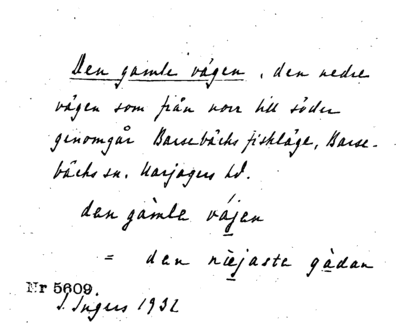 Den gamle vägen, den nedre
vägen som från norr till söder
genomgår Barsebäcks fiskläge, Barse-
bäcks sn. Harjagers hd.
den gàmle vájen
= den nìejaste gàdan
Nr 5609.
I. Ingers 1932